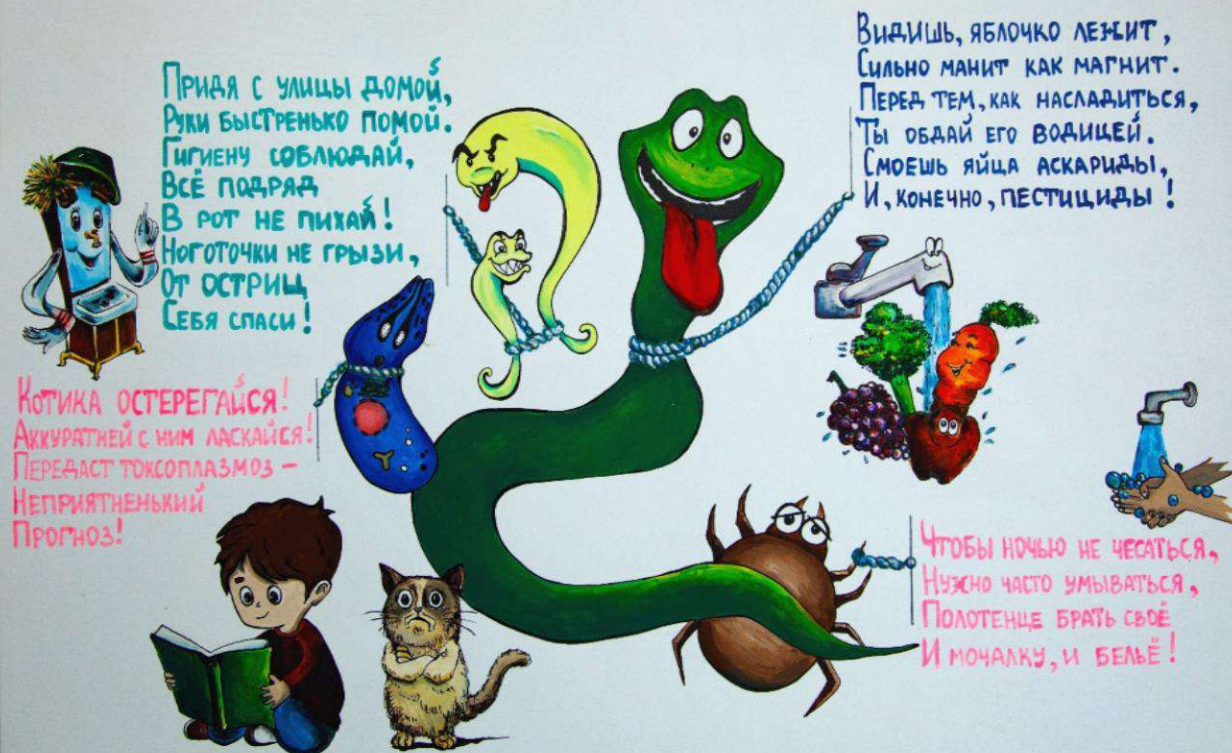 Придя с улицы домой,
Руки быстренько помой.
Гигиену соблюдай,
Всё подряд
В рот не пихай!
Ноготочки не грызи,
От остриц
Себя спаси!
Видишь, яблочко лежит,
Сильно манит как магнит.
Перед тем, как насладиться,
Ты обдай его водицей.
Смоешь яйца аскариды,
И, конечно, пестициды!
Котика остерегайся!
Аккуратней с ним ласкайся!
Передаст токсоплазмоз –
Неприятненький
Прогноз!
Чтобы ночью не чесаться,
Нужно часто умываться,
Полотенце брать своё
И мочалку, и бельё!